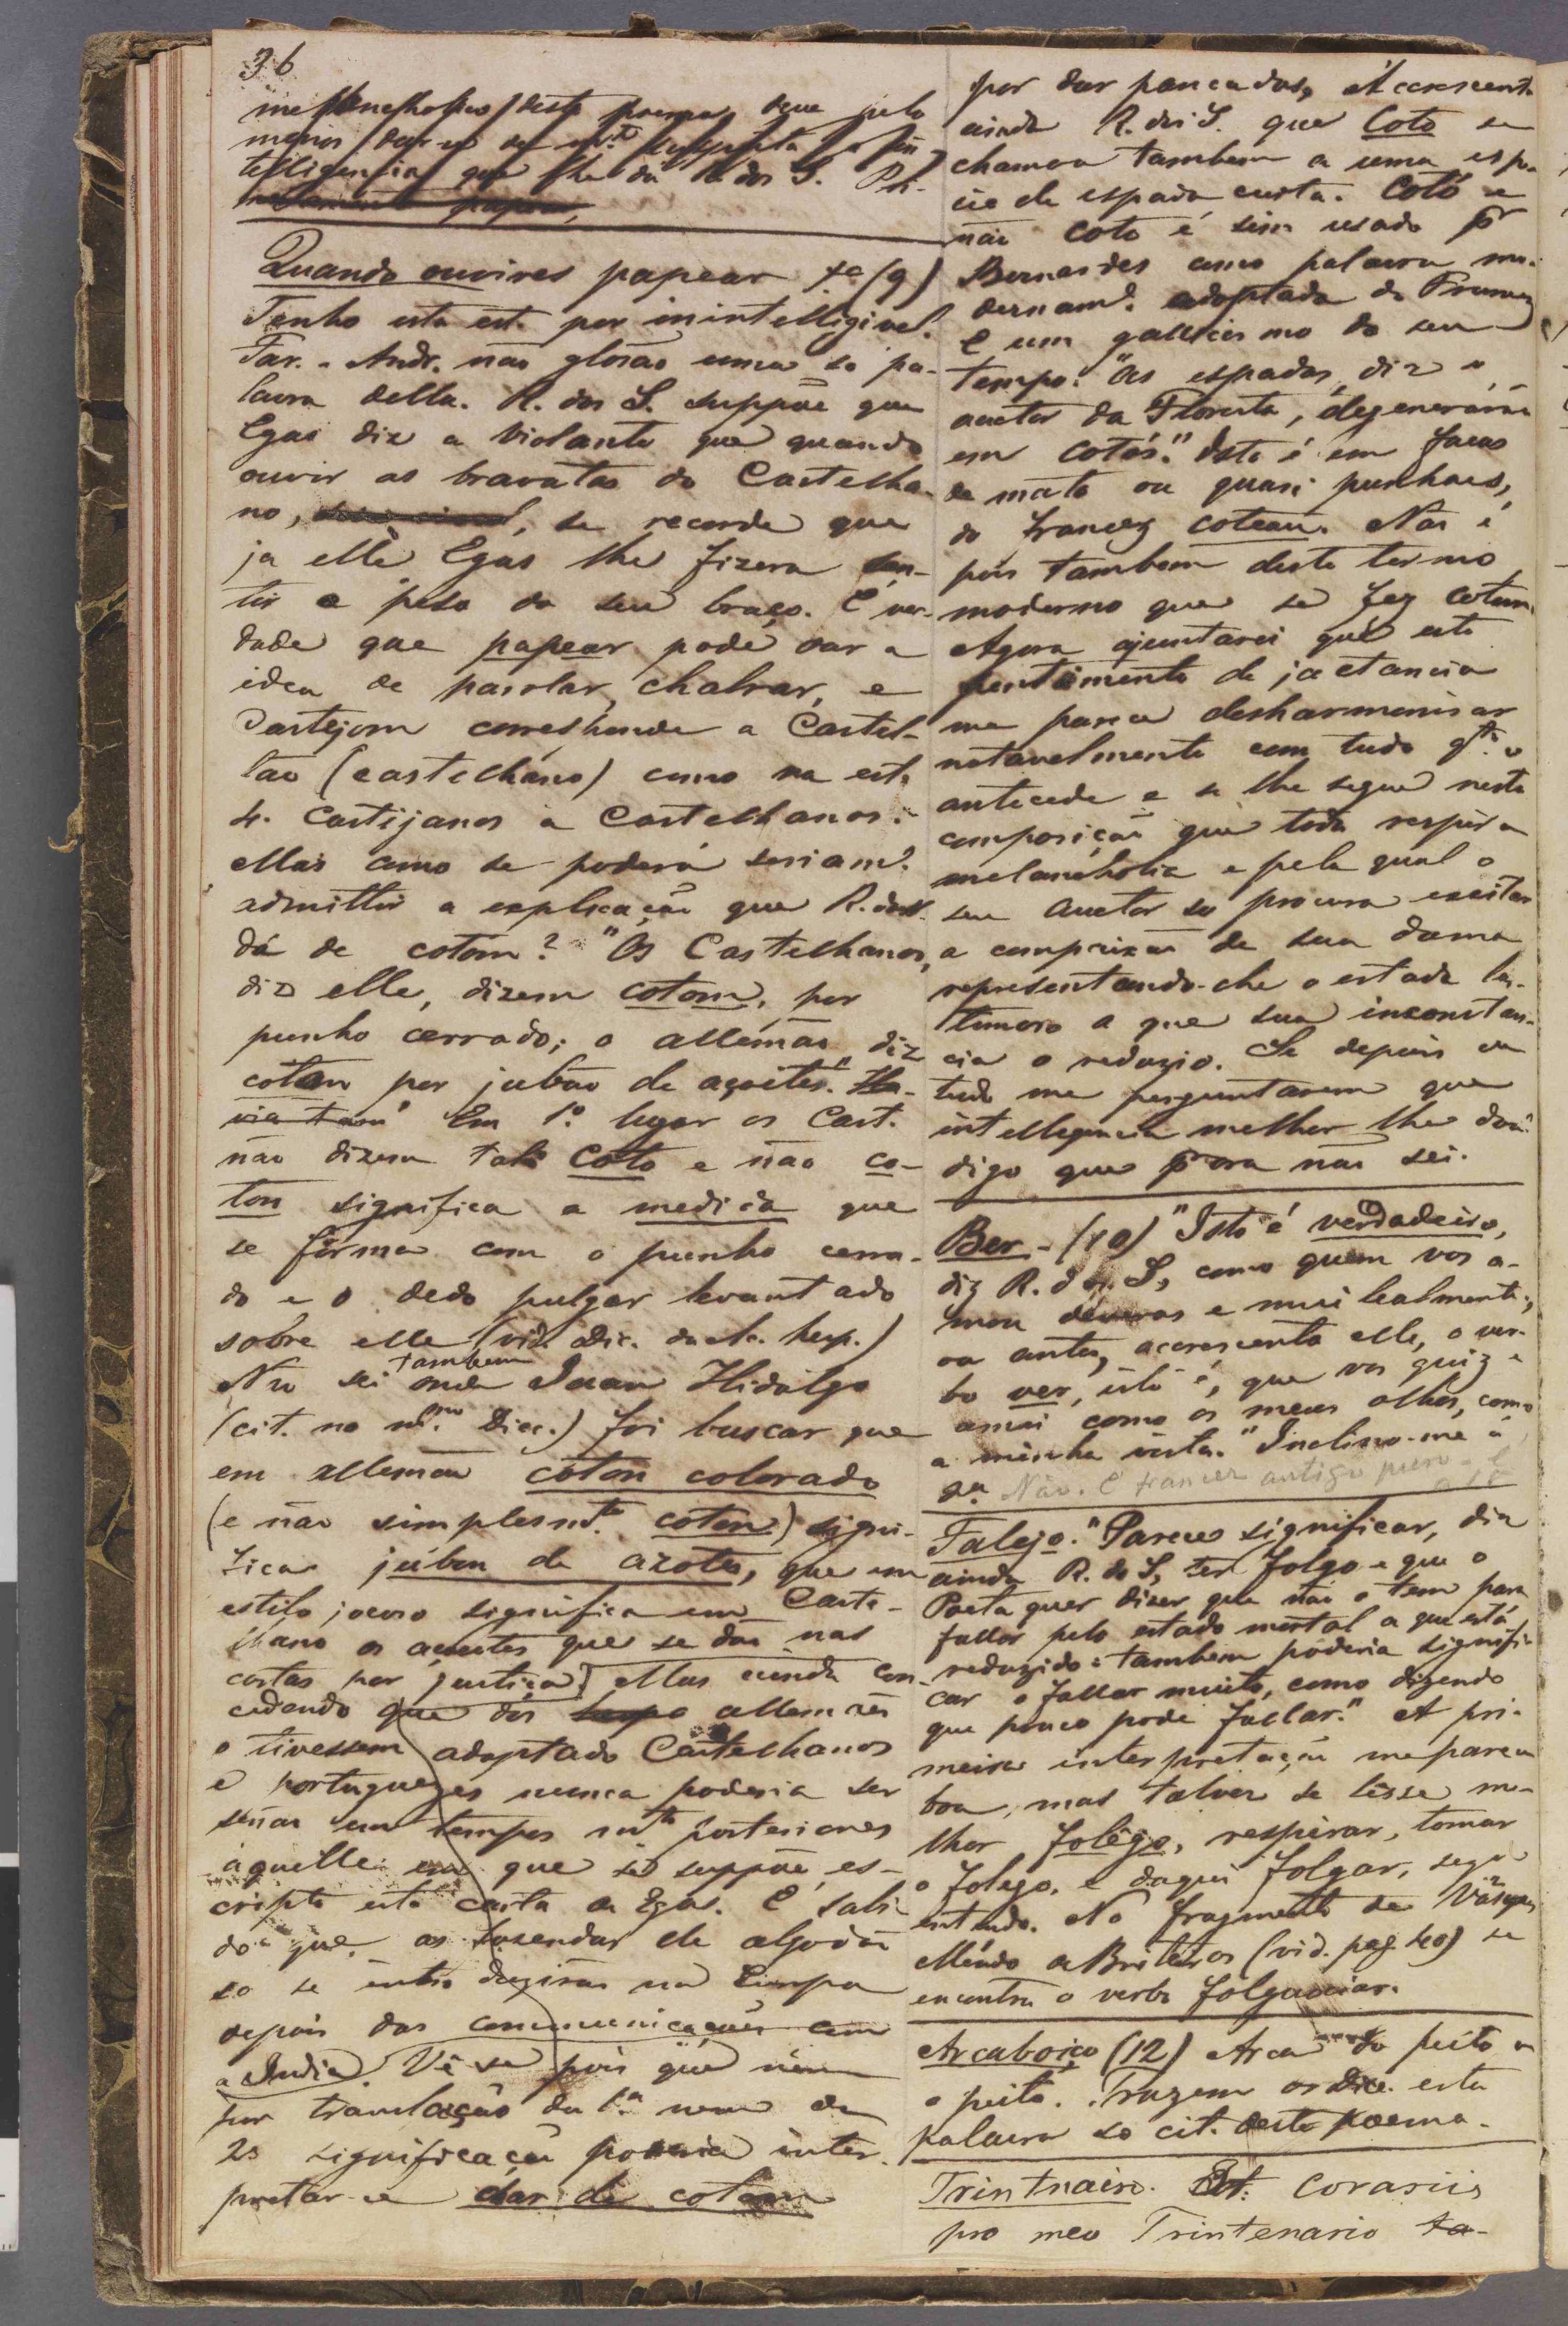 36
melancholico desta poema, deve pelo
menos dar-se de m.to suspeita a in-
telligencia que lhe dá R. dos S. Pri-
Quando ouvires papear &c (9)
Tenho esta est. por inintelligivel.
Far. e Andr. não glosão uma só pa-
lavra della. R. dos S. suppõe que
Egas diz a Violante que quando
ouvir as bravatas do Castelha-
no, se recorde que
ja elle Egas lhe fizera sen-
tir o peso do seu braço. E ver-
dade que papear pode dar a
idea de parolar, chalrar, e
Castejom corresponde a Castel-
lão (castelhano) como na est.
4. Castijanos a Castelhanos.
Mas como se poderá seriam.e
admittir a explicação que R. dos S.
dá de cotom? "Os Castelhanos,
diz elle, dizem cotom, por
punho cerrado; o allemão diz
cotan por jubão de açoites." Ha-
via tam Em 1.º lugar os Cast.
não dizem tal. Coto e não co-
ton significa a medida que
se fórma com o punho cerra-
do e o dedo pulgar levantado
sobre elle (vid. Dic. da Ac. hesp.)
Não sei tambem onde Juan Hidalgo
(cit. no m.mo Dicc.) foi buscar que
em allemão coton colorado
(e não simplesm.te coton) signi-
ficar jubon de azotes, que em
estilo jocoso significa em Caste-
lhano os açoutes que se dão nas
costas por justiça. Mas ainda con-
cedendo que dos allemães
o tivessem adoptado Castelhanos
e portuguezes nunca poderia ser
senão em tempos m.to posteriores
áquelle em que se suppõe es-
cripta esta carta de Egas. E sabi-
do que as fazendas de algodão
só se introduzirão na Europa
depois das communicações com
a India. Vê-se pois que nem
por translação da 1.ª nem da
2ª significação poderia inter-
pretar-se dar de cotom
por dar pancadas, Accrescenta
ainda R. dos S. que Coto se
chamou tambem a uma espe-
cie de espada curta. Cotó e
não coto é sim usado pr
Bernardes como palavra mo-
dernam.e adoptada do Francez
E um gallicismo do seu
tempo. "As espadas, diz o
auctor da Floresta, degenerárão
em cotós." Isto é em facas
de mato ou quasi punhaes,
do francez coteau. Não é
pois tambem deste termo
moderno que se fez cotom.
Agora ajuntarei que este
sentimento de jactancia
me parece desharmonisar
notavelmente com tudo q.to o
antecede e se lhe segue nesta
composição que toda respira
melancholia e pela qual o
seu auctor so procura excitar
a compaixão de sua dama
representando-lhe o estado las-
timoso a que sua inconstan-
cia o reduzio. Se depois de
tudo me perguntarem que
intellegencia melhor lhe dou
digo que pr ora não sei.
Ber - (10) "Isto é verdadeiro,
diz R. dos S, como quem vos a-
mou deveras e mui lealmente;
ou antes, accrescenta elle, o ver-
bo ver, isto é, que vos quiz e
amei como os meus olhos, como
a minha vista." Inclino-me á
2ª Não. E francez antigo puro
Falejo. "Parece significar, diz
ainda R. do S, ter folgo e que o
Poeta quer dizer que não o tem para
fallar pelo estado mortal a que está
reduzido: tambem poderia signifi-
car o fallar muito, como dizendo
que pouco pode fallar." A pri-
meira interpretação me parece
boa, mas talvez se lêsse me-
lhor folêgo, respirar, tomar
o folego, e daqui folgar, segu
entendo. No fragmento de Vasques
Mendo de Briteiros (vid. pag. 40) se
encontra o verbo folgaociar.
Arcaboiço (12) Arca do peito ou
o peito. Trazem os dicc. esta
palavra so cit. deste poema.
Trintnairo. Est. Corasiis
pro meo Trintenario ta-